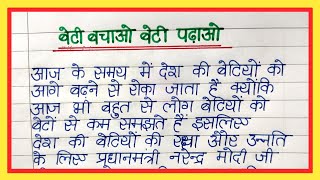 बेटी बचाओ बेटी पढ़ाओ
आज के समय में देश की बेटियों को
आगे बढने से रोका जाता हैं क्योंकि
आज भी बहुत से लोग बेटियों को
बेटों से कम समझते हैं इसलिए
देश की बेटियों की रक्षा और उन्नति
के लिए प्रधानमंत्री नरेन्द्र मोदी जी